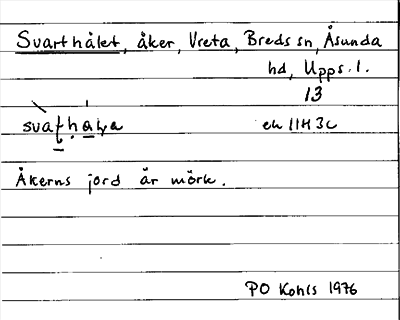 Svarthålet, åker, Vreta, Breds sn, Åsunda
hd, Upps. l.
13
ek 11H 3c
Åkerns jord är mörk.
PO Kohls 1976